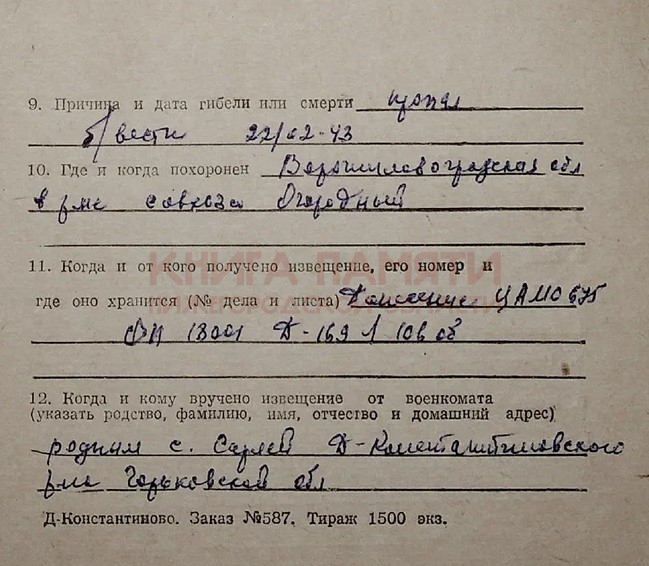 9. Причина и дата гибели или смерти пропал
б/вести 22/02-43
10. Где и когда похоронен Ворошиловоградская обл
в р-не совхоза Огородный
КНИГА ПАМЯТИ
11. Когда и от кого получено извещение, его номер и
НИЖЕГОРОДСКОЙ ОБЛАСТИ
где оно хранится (№ дела и листа) Донесение ЦАМО
ОП 18001 Д-169 Л 106 об
12. Когда и кому вручено извещение от военкомата
(указать родство, фамилию, имя, отчество и домашний адрес)
родным с. Сарлей Д-Константиновского
р-на Горьковской обл
Д-Константиново. Заказ №587. Тираж 1500 экз.